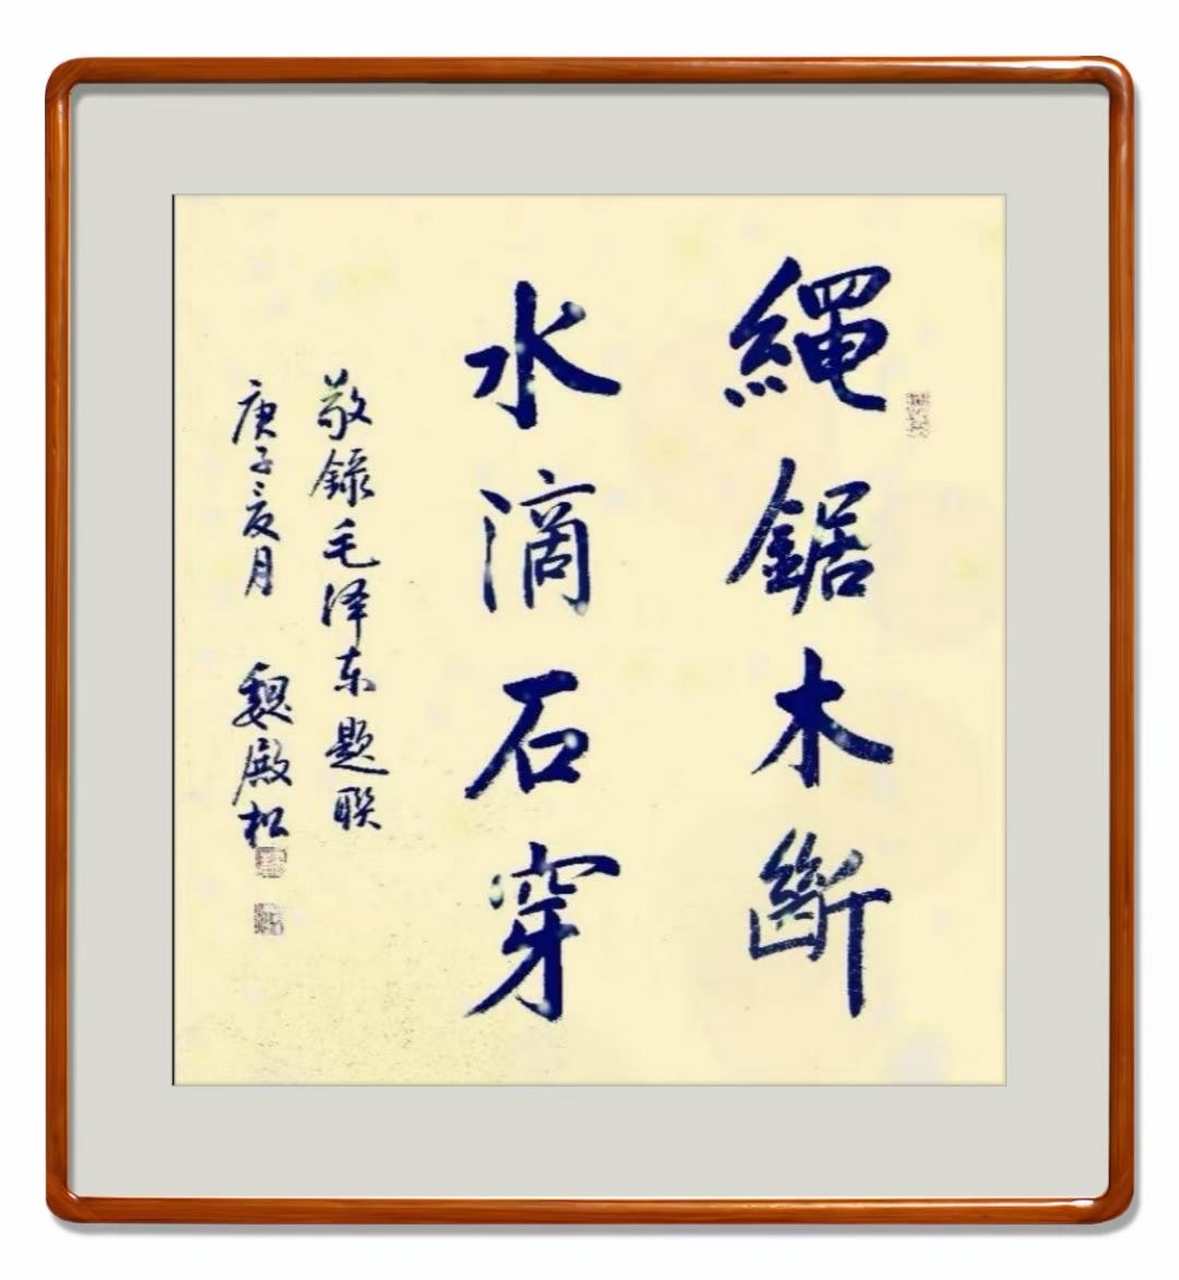 繩鋸木斷
水滴石穿
敬錄毛泽东题联
庚子亥月 魏殿松